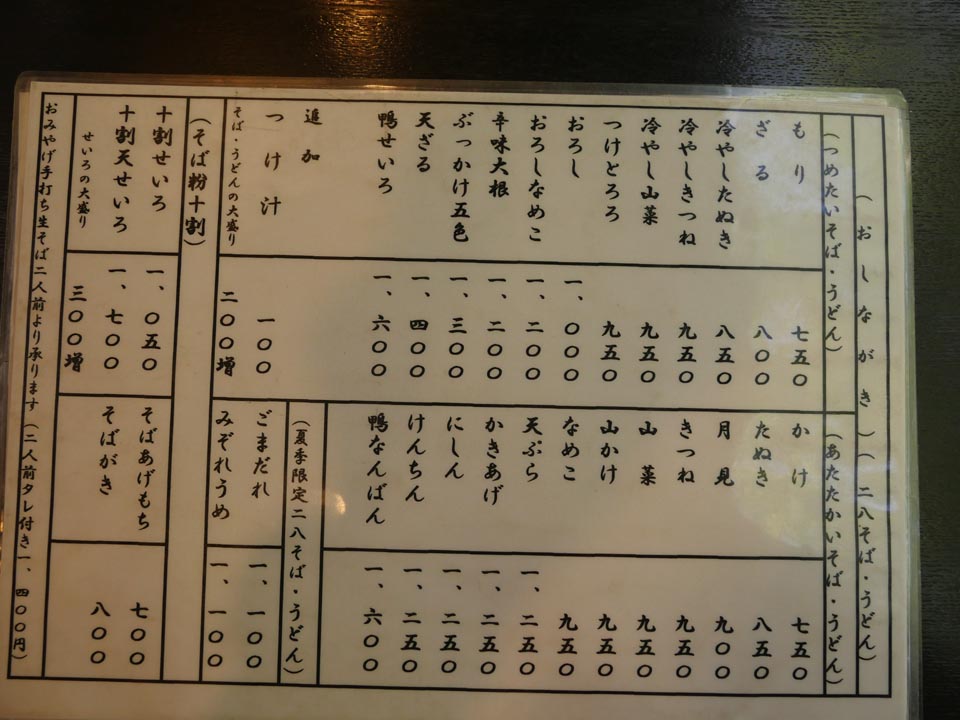 （おしながき）（二八そば・うどん）
（つめたいそば・うどん）
もり 七五〇
ざる 八〇〇
冷やしたぬき 八五〇
冷やしきつね 九五〇
冷やし山菜 九五〇
つけとろろ 九五〇
おろし 一、〇〇〇
おろしなめこ 一、二〇〇
辛味大根 一、二〇〇
ぶっかけ五色 一、三〇〇
天ざる 一、四〇〇
鴨せいろ 一、六〇〇
追加
つけ汁 一〇〇
そば・うどんの大盛り 二〇〇増
（あたたかいそば・うどん）
かけ 七五〇
たぬき 八五〇
月見 九〇〇
きつね 九五〇
山菜 九五〇
山かけ 九五〇
なめこ 九五〇
天ぷら 一、二五〇
かきあげ 一、二五〇
にしん 一、二五〇
けんちん 一、二五〇
鴨なんばん 一、六〇〇
（夏季限定二八そば・うどん）
ごまだれ 一、一〇〇
みぞれうめ 一、一〇〇
（そば粉十割）
十割せいろ 一、〇五〇
十割天せいろ 一、七〇〇
せいろの大盛り 三〇〇増
そばあげもち 七〇〇
そばがき 八〇〇
おみやげ手打ち生そば二人前より承ります（二人前タレ付き一、四〇〇円）